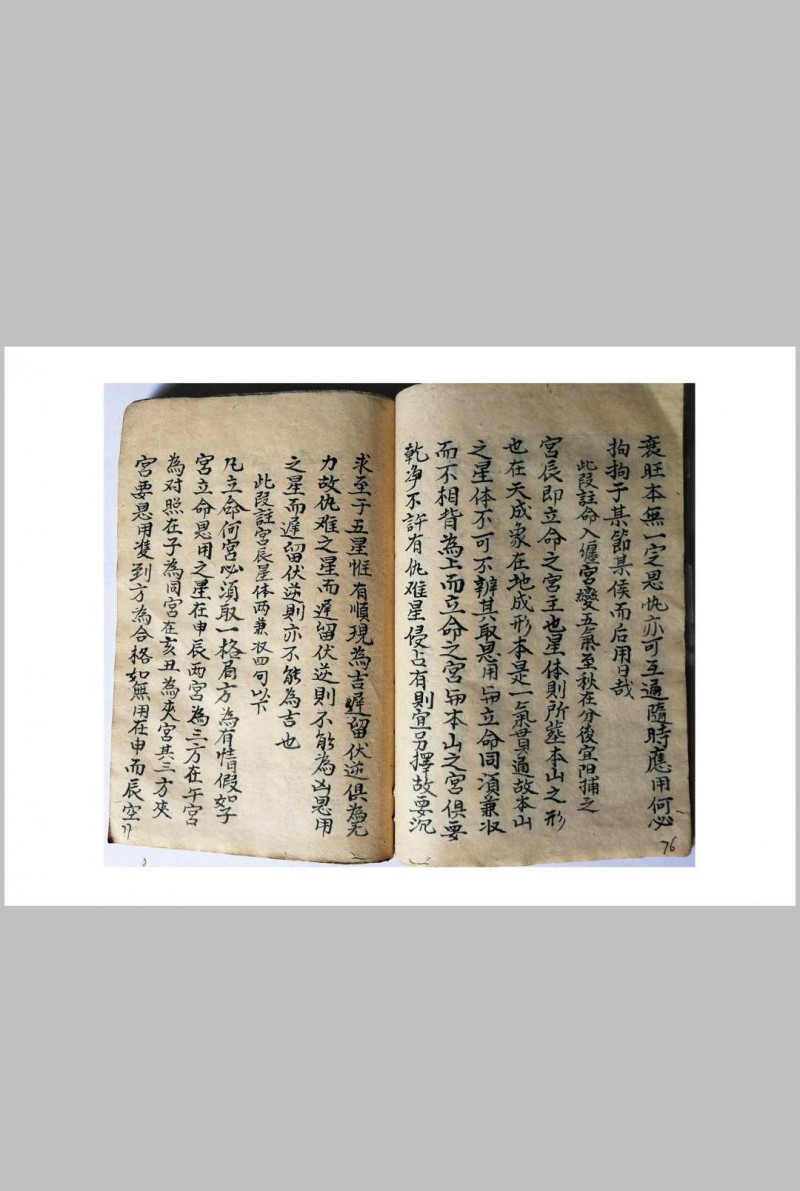 衰旺本無一定恩仇亦可互通隨時應用何必
拘拘于某節某侯而后用日哉
此段註命入躔宮變五氣至秋在分後宜陽捕之
宮辰即立命之宮主也星体則所塟本山之形
也在天成象在地成形本是一氣貫通故本山
之星体不可不辨其取恩用与立命同須兼收
而不相背為上而立命之宮与本山之宮俱要
乾净不許有仇难星侵占有則宜另擇故要沉
76
求至于五星惟有順現為吉遲留伏逆俱為无
力故仇难之星而遲留伏逆則不能為凶恩用
之星而遲留伏逆則亦不能為吉也
此段註宮辰星体两兼收四句以下
凡立命何宮必須取一格局方為有情假如子
宮立命恩用之星在申辰两宮為三方在午宮
為对照在子為同宮在亥丑為夾宮其三方夾
宮要恩用雙到方為合格如無用在申而辰空